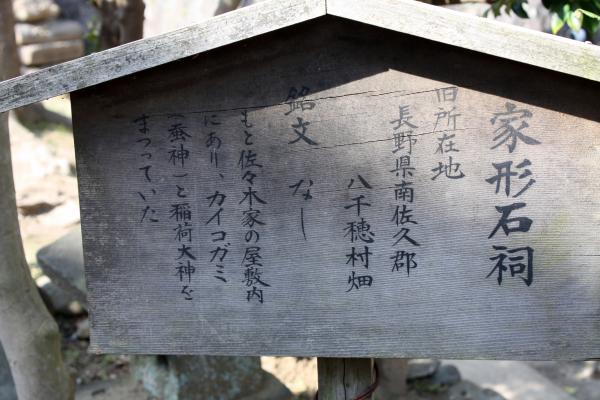 家形石祠
旧所在地
長野県南佐久郡
八千穂村畑
銘文　なし
もと佐々木家の屋敷内
にあり、カイコガミ
（蚕神）と稲荷大神を
まつっていた